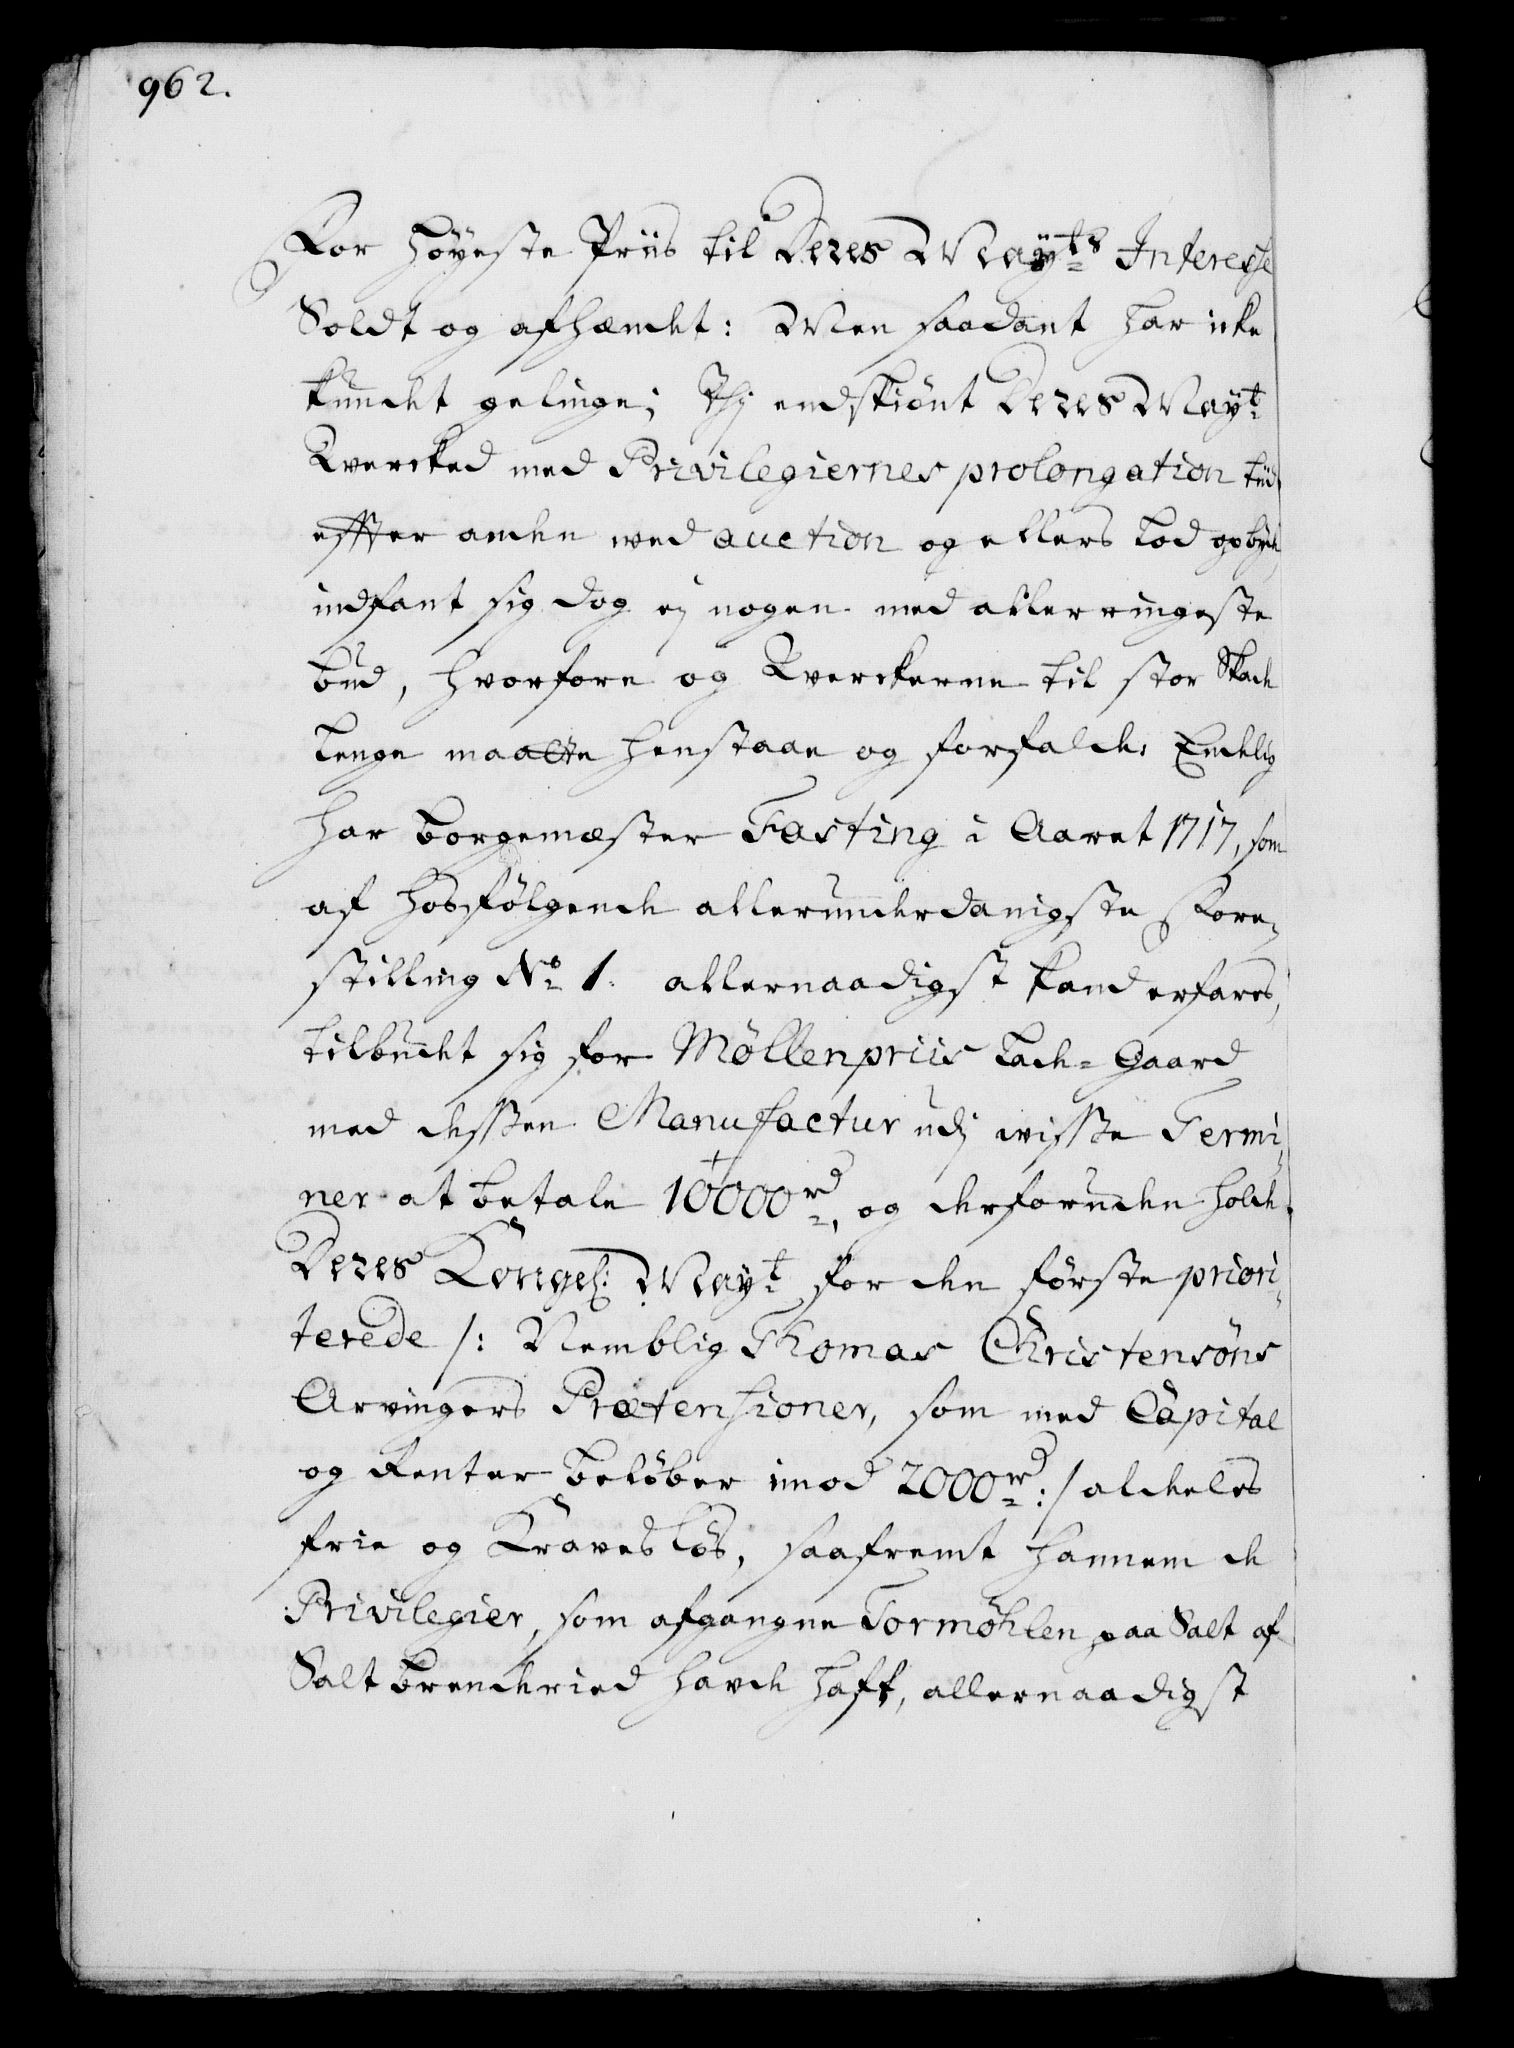 962.
For høyeste Priis til Deres Mayts Interesse
Soldt og afhændet: Men saadant har icke
kundet gelinge; Thj endskiönt Deres Mayt
Qvercked med Privilegiernes prolongation tiid
effter anden ved auction og ellers lod opbyde
indfant sig dog ej nogen med allerringeste
bud, hvorfore og Qverckerne til stor Skade
lenge maatte henstaae og forfalde; Endelig
har borgemæster Fasting i Aaret 1717, som
af hosfölgende allerunderdanigste Fore,
stilling No 1. allernaadigst kand erfares,
tilbudet sig for Møllenpriis Lade-Gaard
med dessen Manufactur udj wisse Termi,
ner at betale 10000rd, og desforuden holde
Deres Kongel: Mayt for den første priori,
terede /: Nemblig Thomas Christensöns
Arvingers Prætensioner, som med Capital
og Renter belöber imod 2000rd :/ aldeles
frie og Kravesløs, saafremt hannem de
Privilegier, som afgangne Tormøhlen paa Salt af
Salt brenderied havde haft, allernaadigst